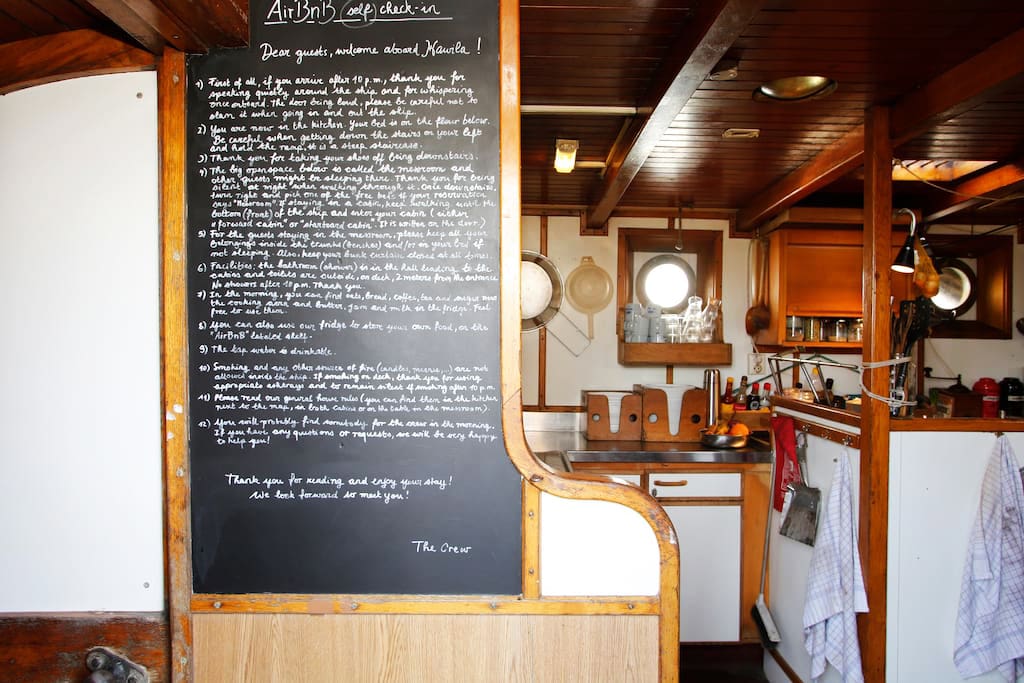 AirBnB self check-in
Dear guests, welcome aboard Kawila !
1) First of all, if you arrive after 10 p.m., thank you for
speaking quietly around the ship and for whispering
once onboard. The door being loud, please be careful not to
slam it when going in and out the ship.
2) You are now in the kitchen. Your bed is on the floor below.
Be careful when getting down the stairs on your left
and hold the ramp, it is a steep staircase.
3) Thank you for taking your shoes off being downstairs.
4) The big openspace below is called the messroom and
other guests might be sleeping there. Thank you for being
silent at night when walking through it. Once downstairs,
turn right and pick one of the free bed if your reservation
says "Messroom". If staying in a cabin, keep walking until the
bottom (front) of the ship and enter your cabin (either
"forward cabin" or "starboard cabin". It is written on the door.)
5) For the guests staying in the messroom, please keep all your
belongings inside the trunks (benches) and/or in your bed if
not sleeping. Also, keep your bunk curtain closed at all times.
6) Facilities: the bathroom (shower) is in the hall leading to the
cabins and toilets are outside, on deck, 2 meters from the entrance.
No showers after 10 p.m. Thank you.
7) In the morning, you can find oats, bread, coffee, tea and sugar near
the cooking area and butter, jam and milk in the fridge. Feel
free to use them.
8) You can also use our fridge to store your own food, on the
"AirBnB" labeled shelf.
9) The tap water is drinkable.
10) Smoking and any other source of fire (candles, ...) are not
allowed inside the ship. If smoking on deck, thank you for using
appropriate ashtrays and to remain silent if smoking after 10 p.m.
11) Please read our general house rules (you can find them in the kitchen
next to the map, in both cabins or on the table in the messroom).
12) You will probably find somebody for the crew in the morning.
If you have any questions or requests, we will be very happy
to help you!
Thank you for reading and enjoy your stay!
We look forward to meet you!
The Crew